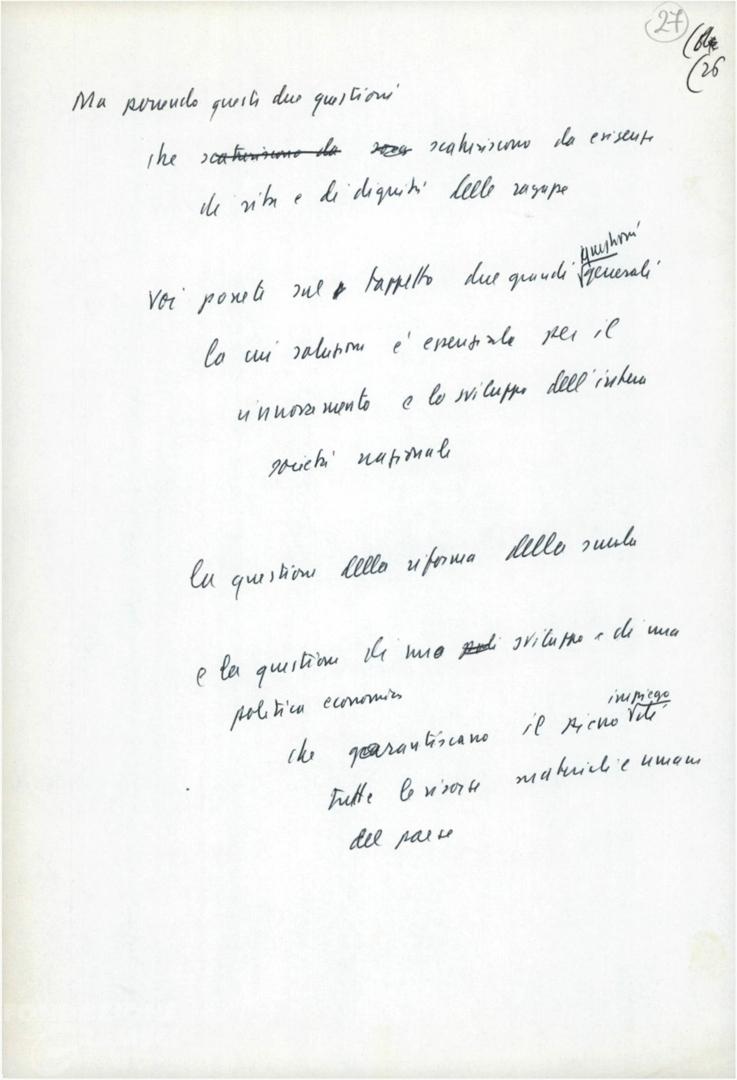 27
(26
Ma ponendo queste due questioni
che scaturiscono da scatu scaturiscono da esigenze
di vita e di dignità delle ragazze
voi ponete sul tappeto due grandi questioni generali
la cui soluzione è essenziale per il
rinnovamento e lo sviluppo dell'intera
società nazionale
la questione della riforma della scuola
e la questione di uno sviluppo e di una
politica economica
che garantiscano il pieno impiego di
tutte le risorse materiali e umane
del paese